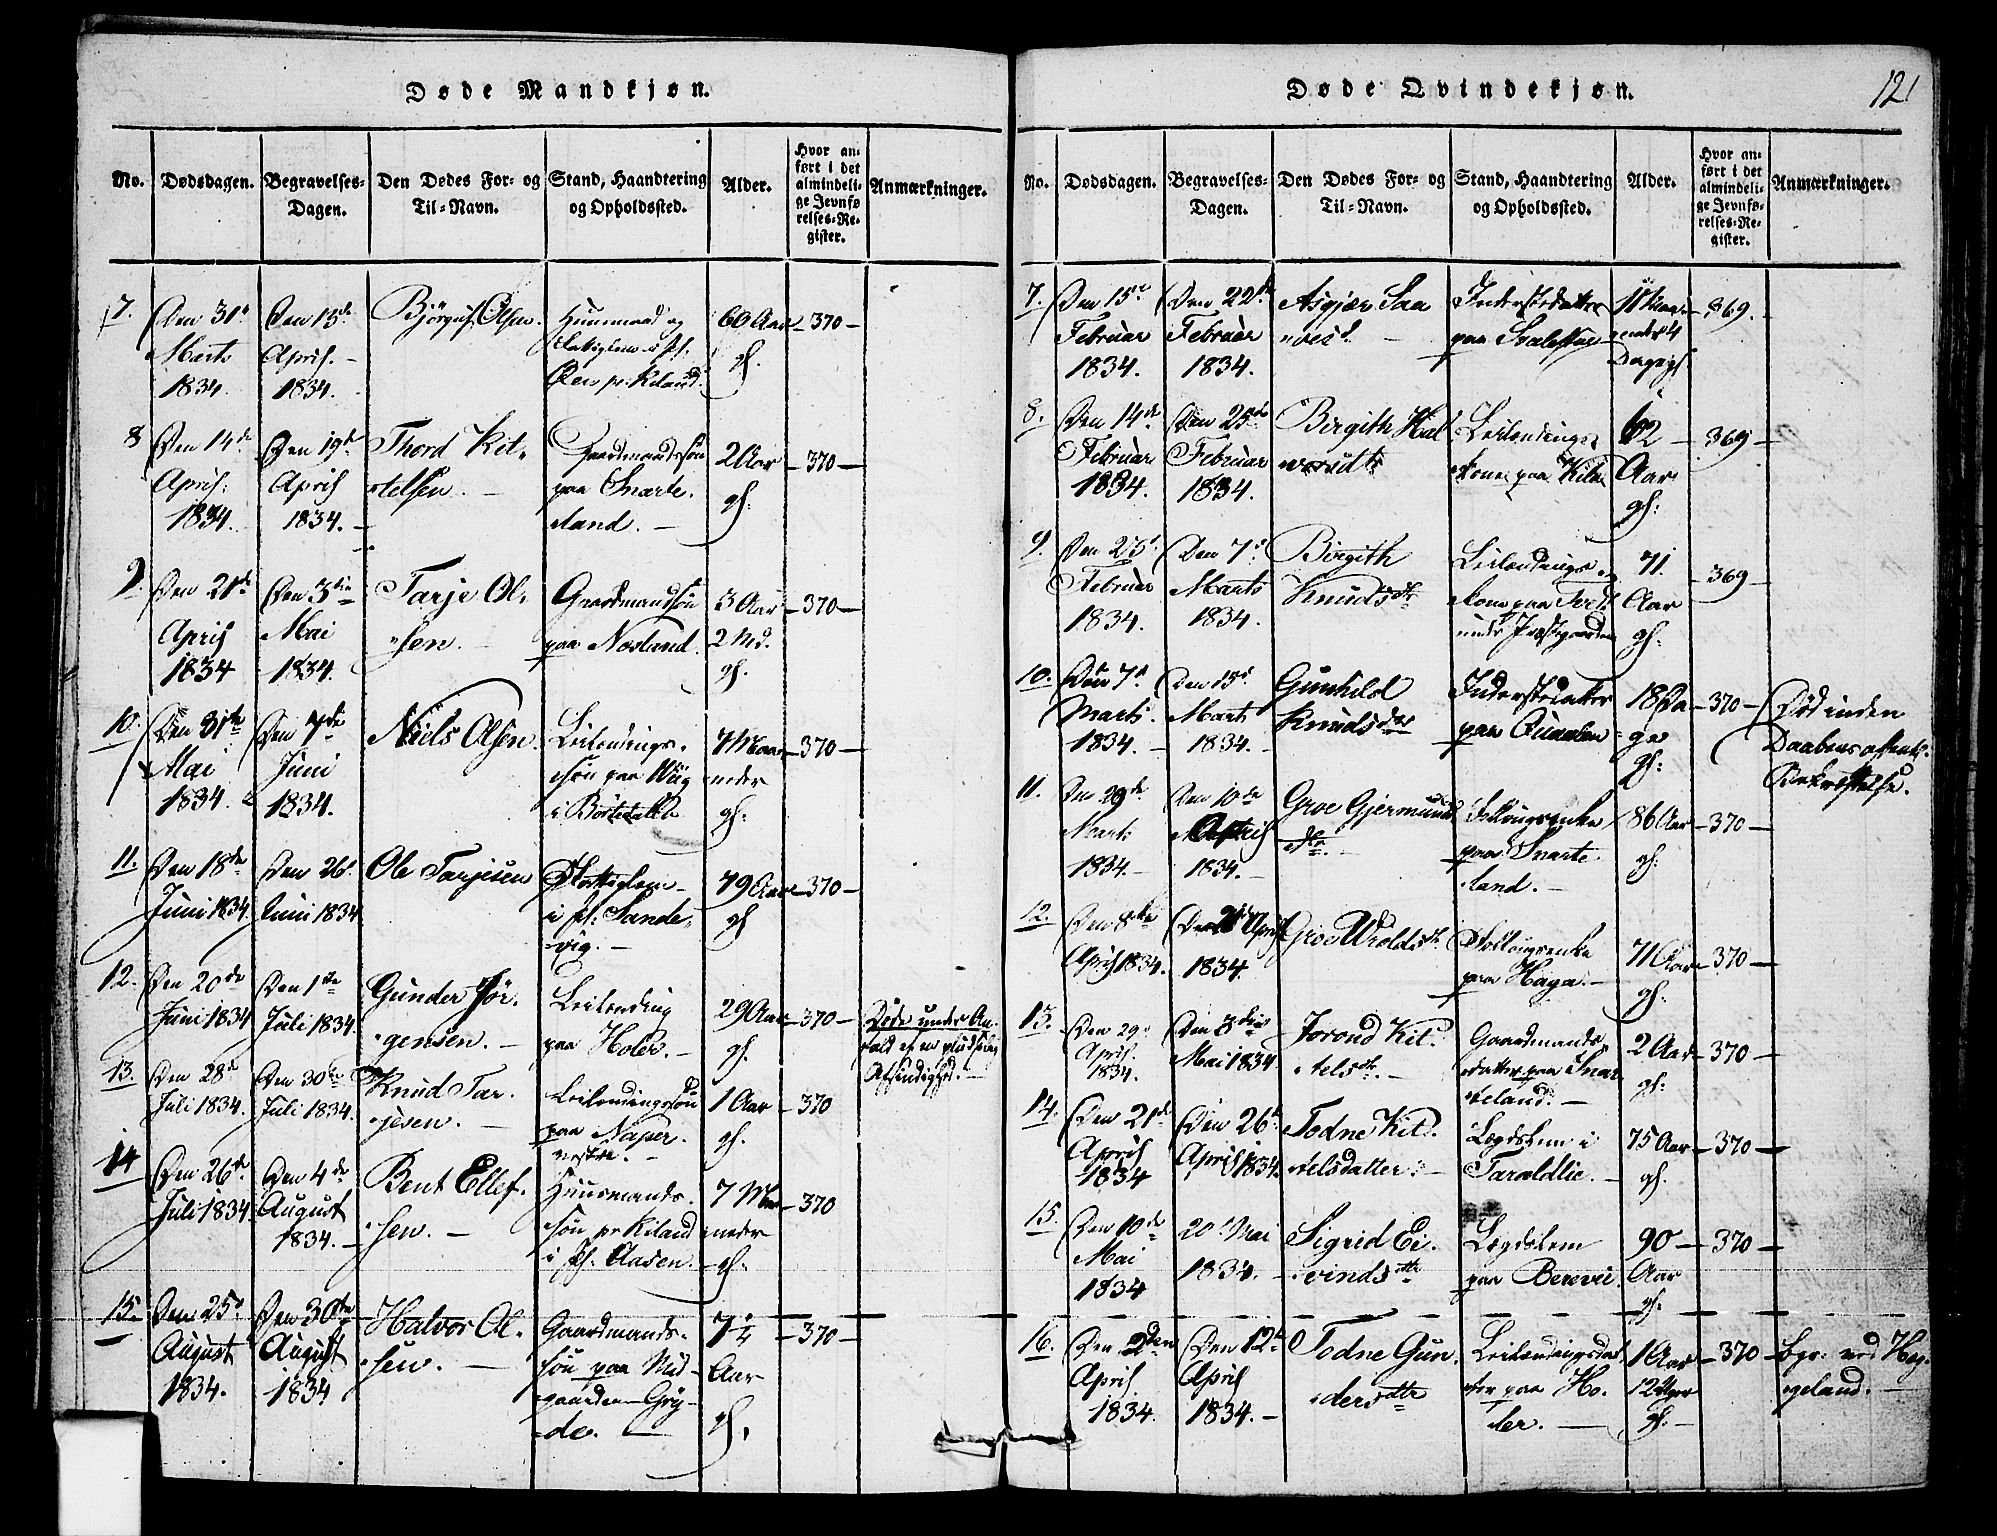 Døde Mandkjøn.
No.
Dødsdagen.
Begravelses-
Dagen.
Den Dødes For- og
Til-Navn.
Stand, Haandtering
og Opholdssted.
Alder.
Hvor an-
ført i det
almindeli-
ge Jevnfø-
relses-Re-
gister.
Anmærkninger.
7.
Den 31
Marts
1834.
Den 13de
April.
1834.
Bjørguf Olsen.
Huusmand og
60 Aar
gl.
370
8
Den 14de
April.
1834.
Den 19de
April
1834.
Thord Kit-
telsen.
Gaardmandssøn
paa Snarte-
land.
2 Aar
gl.
370
9.
Den 21de
April
1834
Den 3die
Mai
1834.
Tarje Ol-
sen.
Gaardmandssøn
paa Næsland.
3 Aar
2 Md.
gl.
370
10.
Den 31te
Mai
1834.
Den 7de
Juni
1834.
Niels Olsen.
Leilendings-
søn paa
i Børtedalen
7 Maa-
neder
gl.
370
11.
Den 18de
Juni 1834.
Den 26
Juni 1834
Ole Tarjesen
Fattiglem
i Sande-
vig.
79 Aar
gl
370
12.
Den 20de
Juni 1834
Den 1ste
Juli 1834.
Gunder Jør-
gensen.
Leilending
paa Holer.
29 Aar
gl.
370
Døde under An-
fald af en pludselig
Afsindighed.
13.
Den 28de
Juli 1834.
Den 30te
Juli 1834.
Knud Tar-
jesen.
Leilendingssøn
paa Naper
vestre.
1 Aar
gl.
370
14
Den 26de
Juli 1834.
Den 4de
August
1834.
Bent Ellef-
sen.
Huusmands-
søn pr Kiland
i Aasen.
7 Maa-
neder
gl.
370
15.
Den 25
August
1834.
Den 30te
August
1834
Halvor Ol-
sen.
Gaardmands-
søn paa Mid-
gaarden Grøj-
de.
7 1/4
Aar
gl.
370
Døde Qvindekjøn.
121
No.
Dødsdagen.
Begravelses-
Dagen.
Den Dødes For- og
Til-Navn.
Stand, Haandtering
og Opholdssted.
Alder.
Hvor an-
ført i det
almindeli-
ge Jevnfø-
relses-Re-
gister.
Anmærkninger.
7.
Den 15de
Februar
1834.
Den 22de
Februar
1834.
Asgjær Saa
Inderstdatter
paa
11 Maa-
neder 4
Dage gl
369.
8.
Den 14de
Februar
1834.
Den 25de
Februar
1834.
Birgith Hal
vorsdtr
Leilendings-
kone paa
62
Aar
gl:
369
9.
Den 25
Februar
1834.
Den 7de
Marts
1834.
Birgith
Knudsdtr
Leilendings-
kone paa
under Præstegaarden
71
Aar
gl:
369
10.
Den 7de
Marts.
1834.
Den 15de
Marts
1834.
Gunhild
Knudsdtr
Inderstdatter
paa
18 Da-
ge
gl:
370
Død inden
Daabens offentl.
Bekræftelse.
11.
Den 29de
Marts
1834.
Den 10de
April
1834.
Groe Gjermunds
dtr.
Follougsenke
paa Snarte-
land.
86 Aar
gl.
370
12.
Den 8de
April 1834.
Den April
1834.
Groe Wroldsdtr
Follougsenke
paa Haga.
71 Aar
gl.
370
13.
Den 29
April.
1834.
Den 3die
Mai 1834
Jorond Kit-
telsdtr.
Gaardmands
datter paa Snar
teland.
2 Aar
gl.
370
14.
Den 21de
April
1834
Den 26de
April 1834.
Todne Kit-
telsdatter.
Lægdslem i
Taraldlie.
75 Aar
gl.
370
15.
Den 10de
Mai
1834
20de Mai
1834.
Sigrid Ei-
vindsdtr
Lægdslem
paa Berevii
90
Aar
gl.
370
16.
Den 2den
April
1834.
Den 12te
April
1834.
Todne Gun-
dersdtr
Leilendingsdat-
ter paa Ho-
ler.
1 Aar
12 Uger
gl.
370
Egr. ved Hæg-
geland.